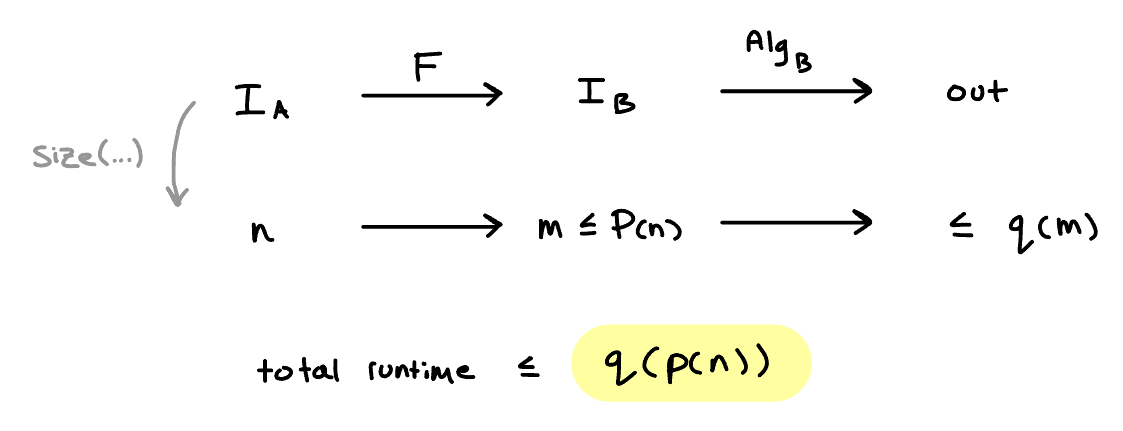 F Alg_B
I_A I_B out
size(...)
n m ≤ P(n) ≤ q(m)
total runtime ≤ q(p(n))